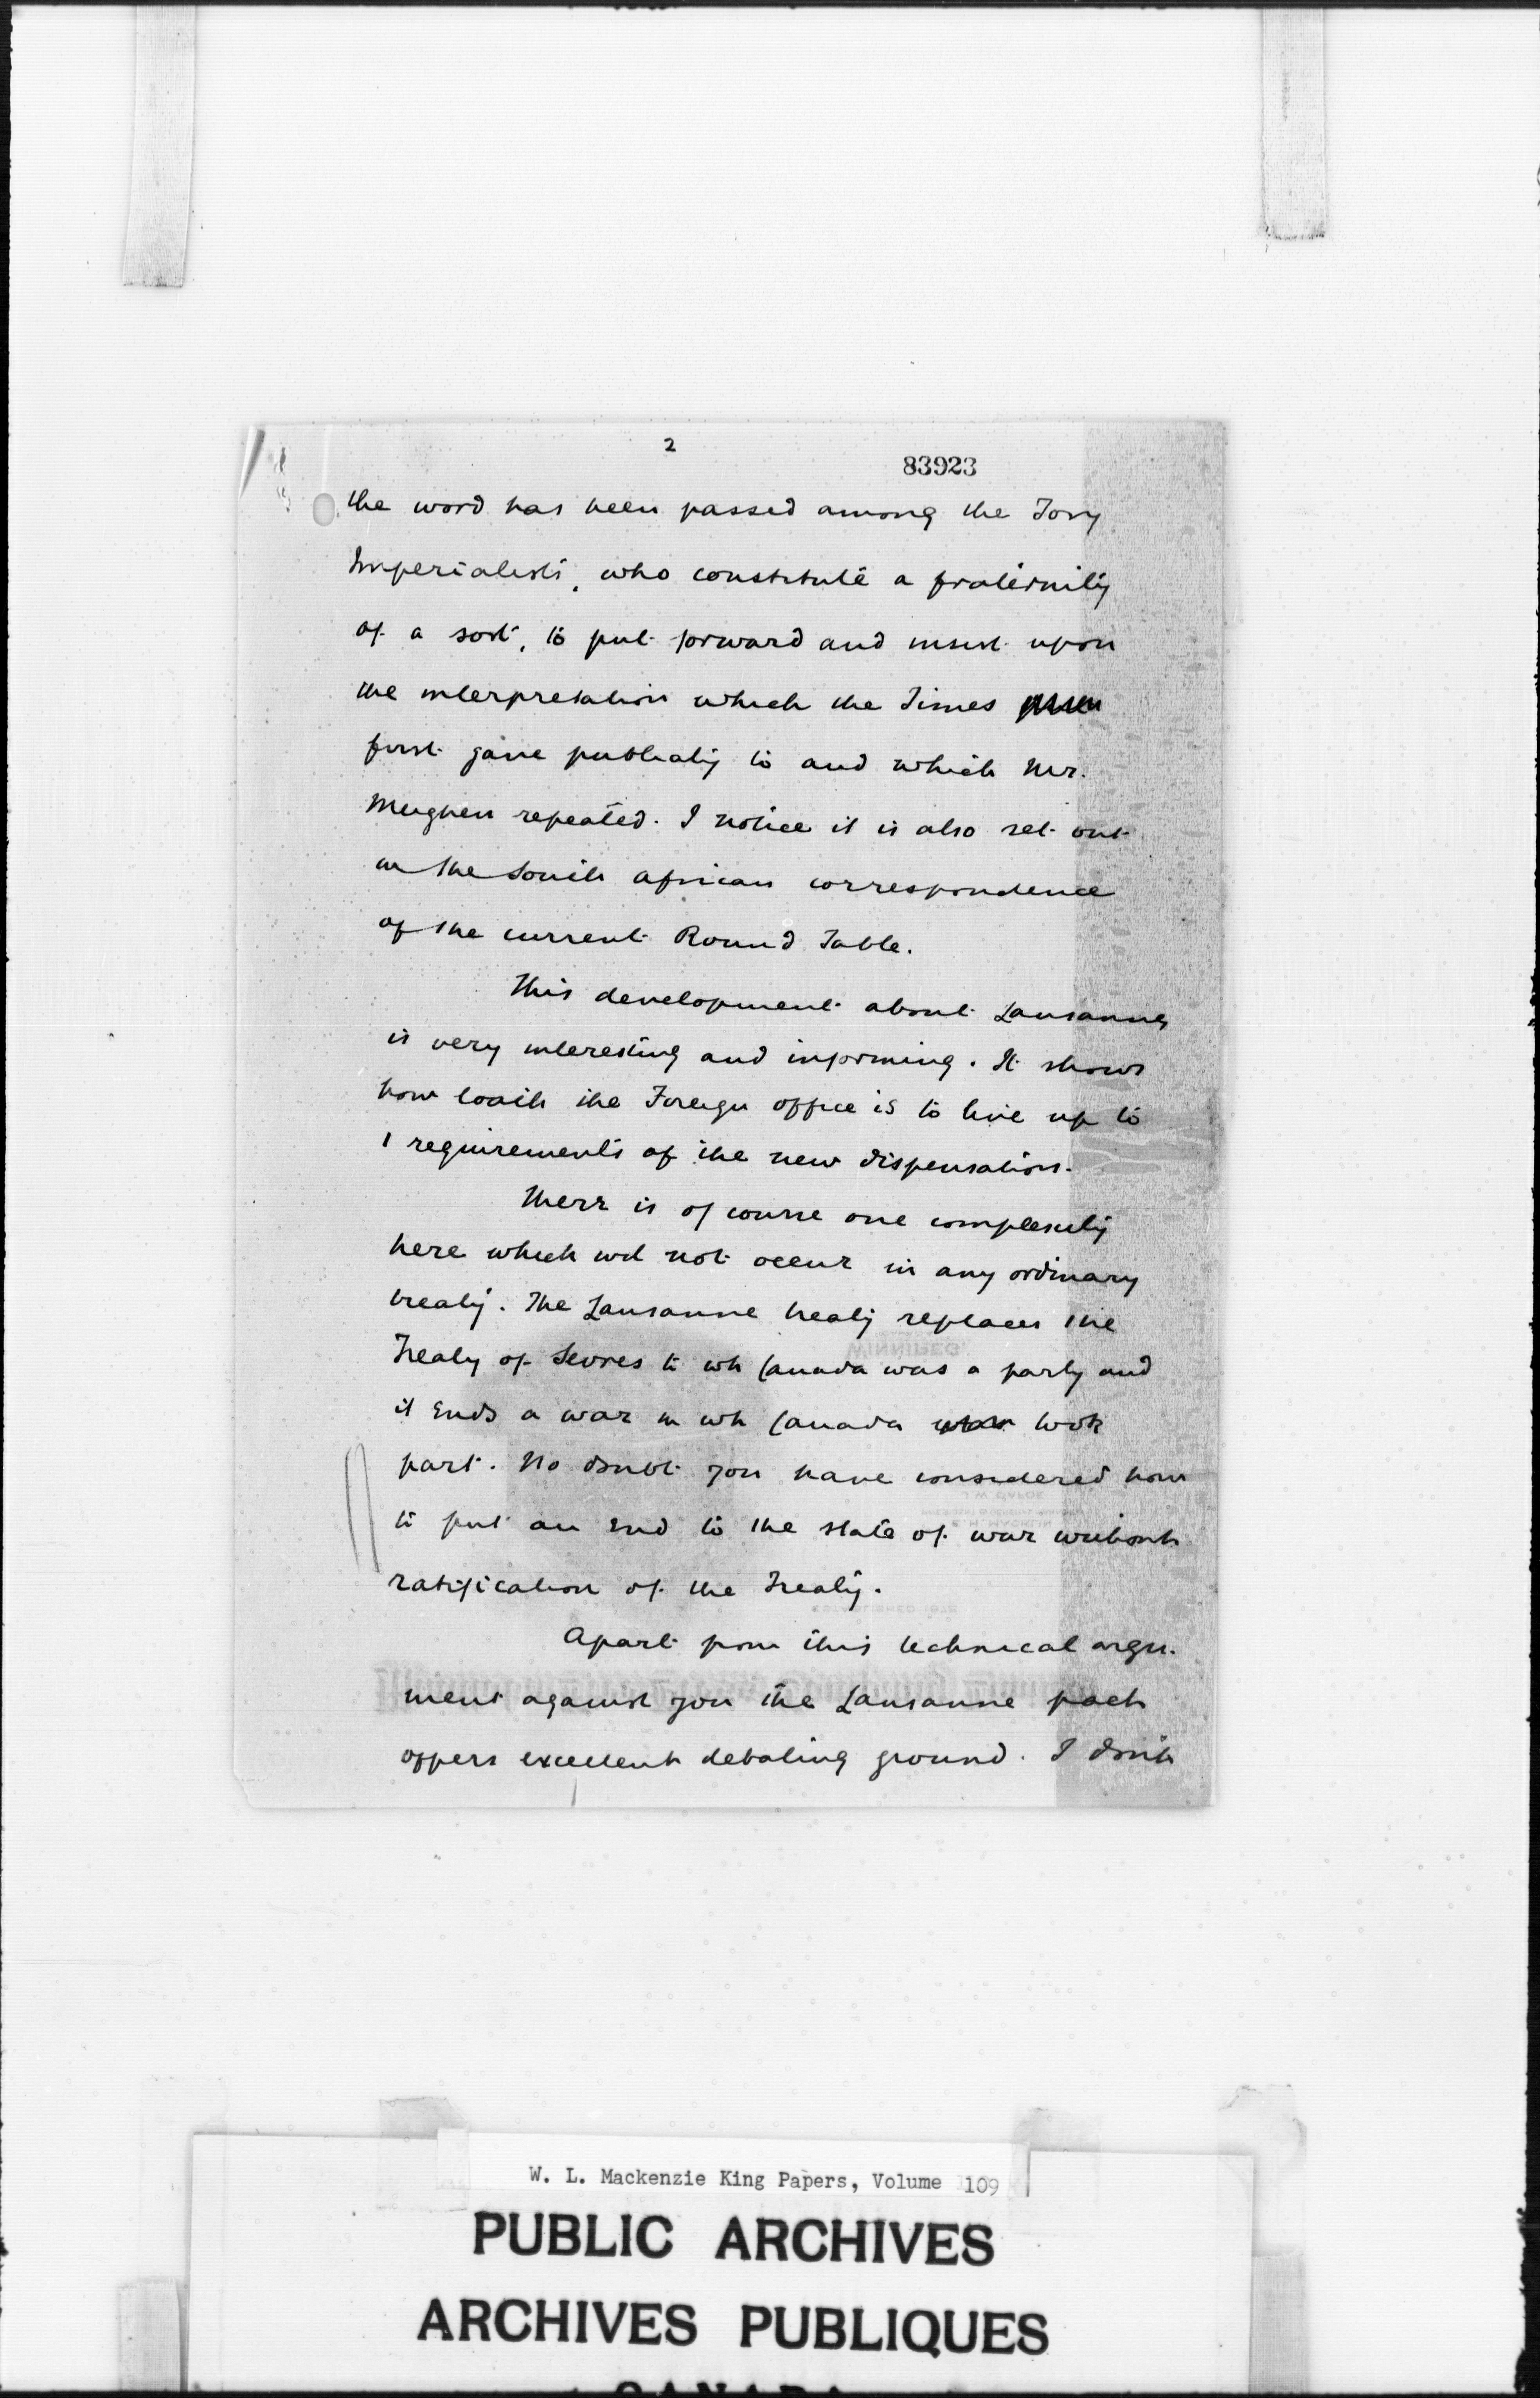 2
83923
the word has been passed among the Tory
Imperialists, who constitute a fraternity
of a sort, to put forward and insist upon
the interpretation which the Times
first gave publicity to and which Mr.
Meighen repeated. I notice it is also set out
in the South African correspondence
of the current Round Table.
This development about Lausanne
is very interesting and informing. It shows
how loath the Foreign office is to live up to
requirements of the new dispensation.
There is of course one complexity
here which wd not occur in any ordinary
treaty. The Lausanne treaty replaces the
Treaty of Sevres to wh Canada was a party and
it ends a war in wh Canada took
part. No doubt you have considered how
to put an end to the state of war without
ratification of the Treaty.
Apart from this technical argu-
ment against you the Lausanne pact
offers excellent debating ground. I don't
WINNIPEG
W. L. Mackenzie King Papers, Volume 109
PUBLIC ARCHIVES
ARCHIVES PUBLIQUES
CANADA